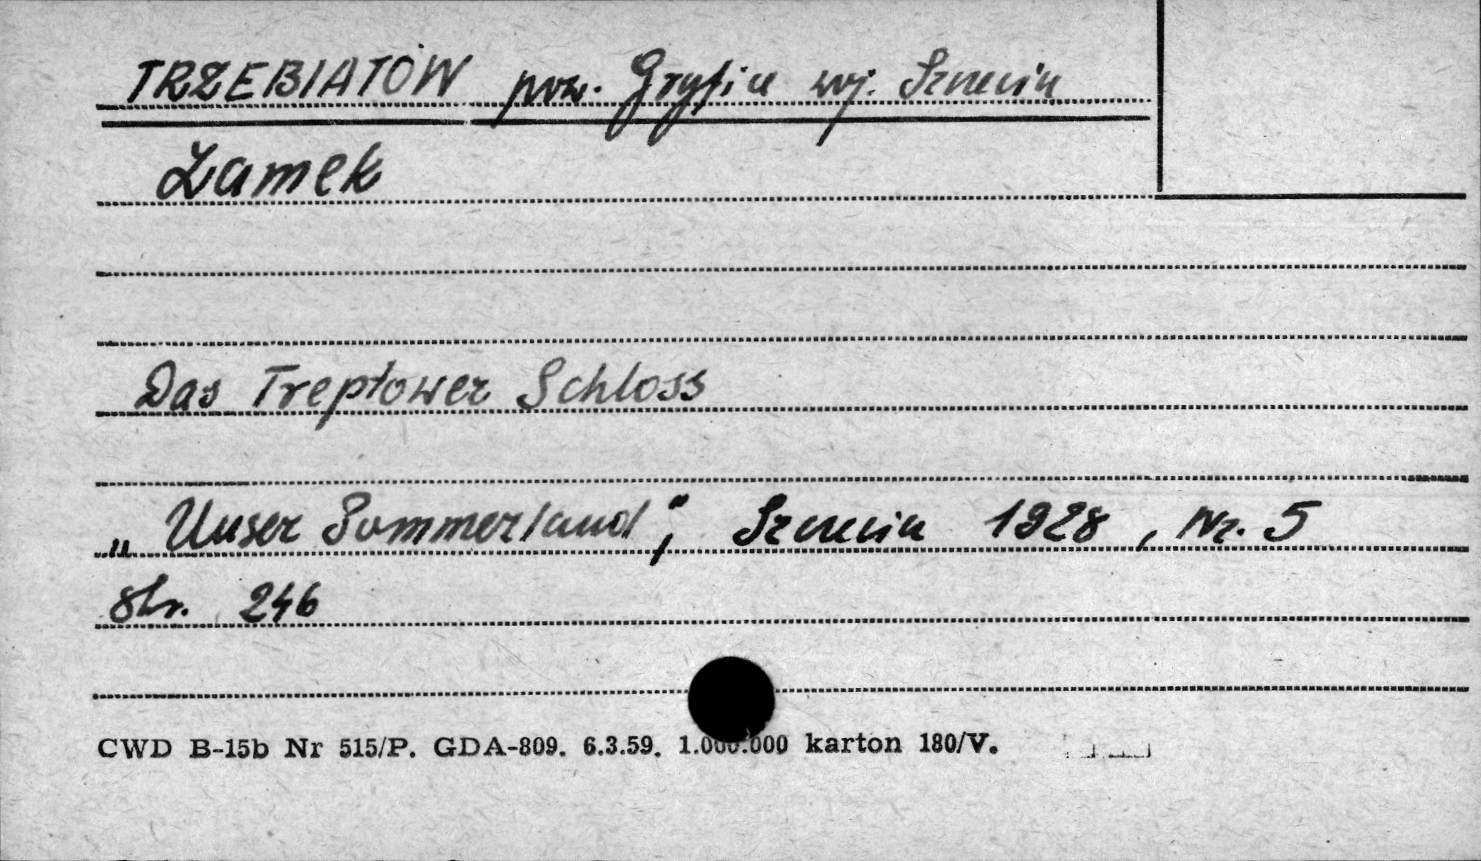 TRZEBIATÓW pow. Gryfice wj. Szczecin
Zamek
Das Treptower Schloss
„Unser Pommerland", Szczecin 1928, Nr. 5
Str. 246
CWD B-15b Nr 515/P. GDA-809. 6.3.59. 1.000.000 karton 180/V.